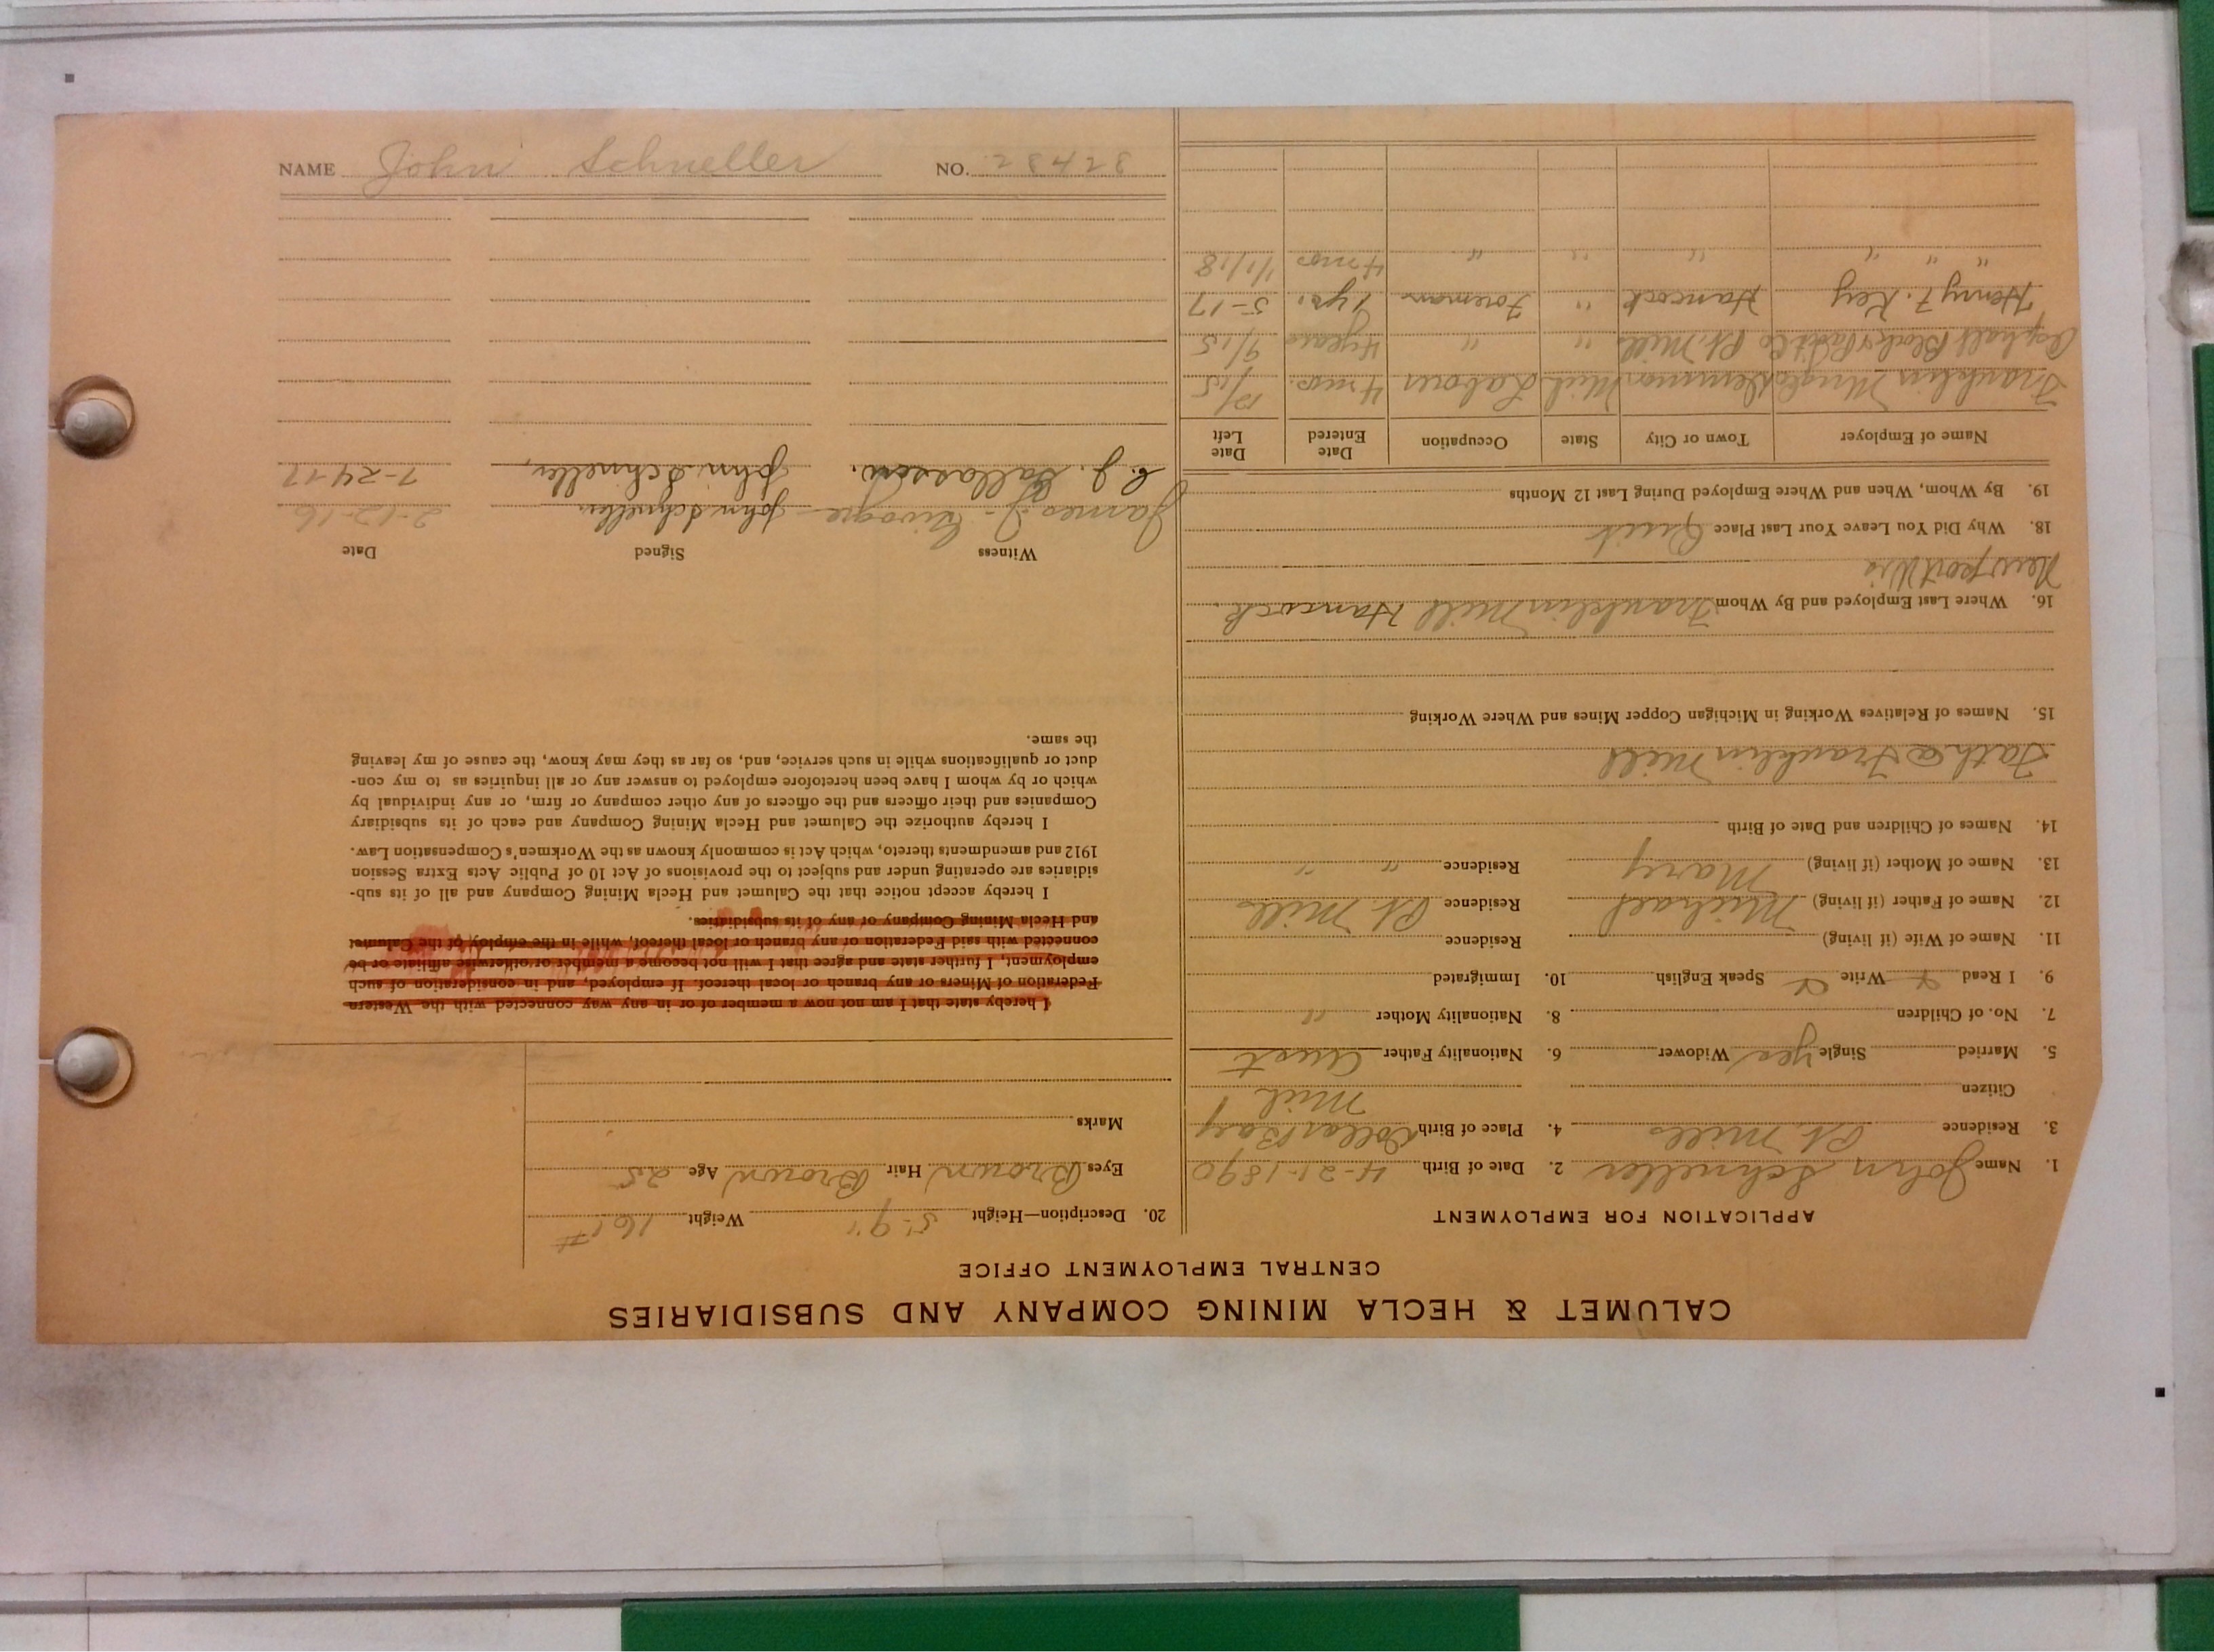 CALUMET & HECLA MINING COMPANY AND SUBSIDIARIES
CENTRAL EMPLOYMENT OFFICE
APPLICATION FOR EMPLOYMENT
1. Name John Schneller 2. Date of Birth 4-21-1890
3. Residence Pt. Mills 4. Place of Birth Dollar Bay
Mich
Citizen
5. Married Single yes Widower 6. Nationality Father Aust
7. No. of Children 8. Nationality Mother "
9. I Read Write Speak English 10. Immigrated
11. Name of Wife (if living) Residence
12. Name of Father (if living) Michael Residence Pt. Mills
13. Name of Mother (if living) Mary Residence " "
14. Names of Children and Date of Birth
Fath @ Franklin Mill
15. Names of Relatives Working in Michigan Copper Mines and Where Working
16. Where Last Employed and By Whom Franklin Mill Hancock
Newport Wis
18. Why Did You Leave Your Last Place Quit
19. By Whom, When and Where Employed During Last 12 Months
Name of Employer Town or City State Occupation Date Entered Date Left
Franklin Mich Labour 4 mos.
Asphalt Block Pt. Mills " " 4 years 9/15
Henry F. Key Hancock " Foreman 1 yr. 5-17
" " " " " " 4 mos 1/1/18
20. Description—Height 5-9" Weight 161#
Eyes Brown Hair Brown Age 25
Marks
I hereby state that I am not now a member of or in any way connected with the Western
Federation of Miners or any branch or local thereof. If employed, and in consideration of such
employment, I further state and agree that I will not become a member or otherwise affiliate or be
connected with said Federation or any branch or local thereof, while in the employ of the Calumet
and Hecla Mining Company or any of its subsidiaries.
I hereby accept notice that the Calumet and Hecla Mining Company and all of its sub-
sidiaries are operating under and subject to the provisions of Act 10 of Public Acts Extra Session
1912 and amendments thereto, which Act is commonly known as the Workmen's Compensation Law.
I hereby authorize the Calumet and Hecla Mining Company and each of its subsidiary
Companies and their officers and the officers of any other company or firm, or any individual by
which or by whom I have been heretofore employed to answer any or all inquiries as to my con-
duct or qualifications while in such service, and, so far as they may know, the cause of my leaving
the same.
Witness Signed Date
James John Schneller 2-12-16
John Schneller, 7-24-17
NAME John Schneller NO. 23423